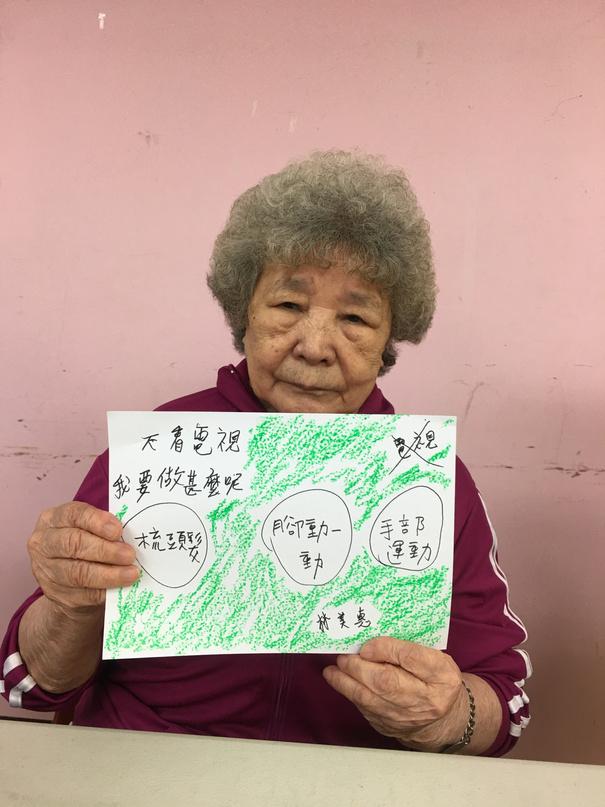 不看電視
電視
我要做甚麼呢
梳頭髮
腳動一
動
手部
運動
美惠